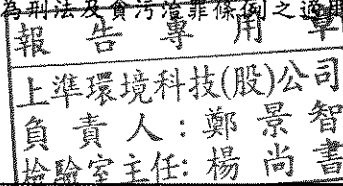 為刑法及貪污治罪條例之適用
報告專用章
上準環境科技(股)公司
負責人:鄭景智
檢驗室主任:楊尚書